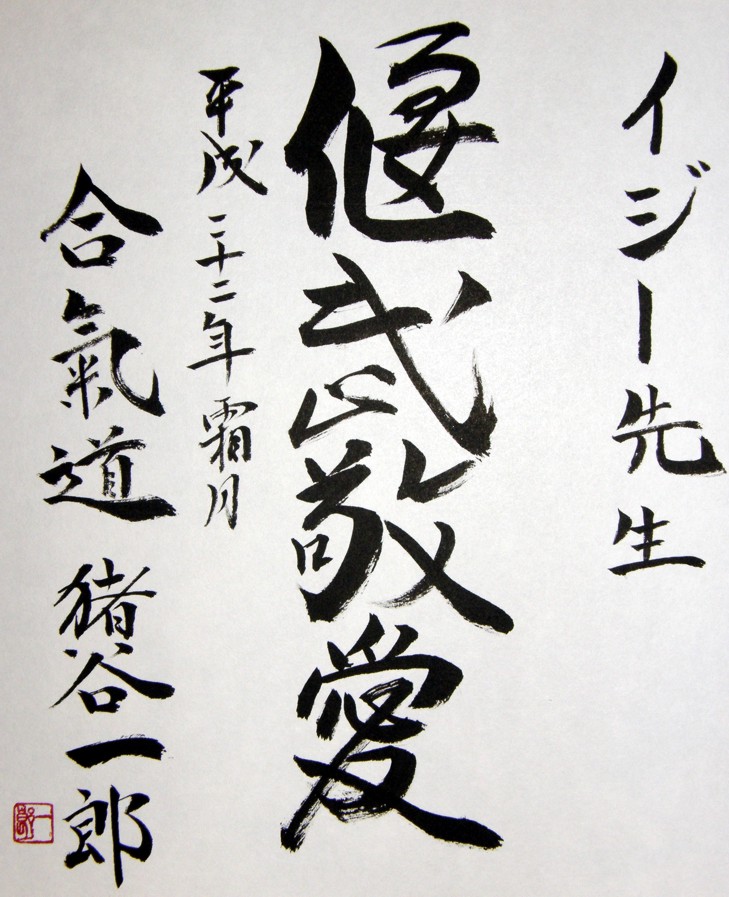 イジー先生
偃武敬愛
平成二十二年霜月
合氣道 猪谷一郎